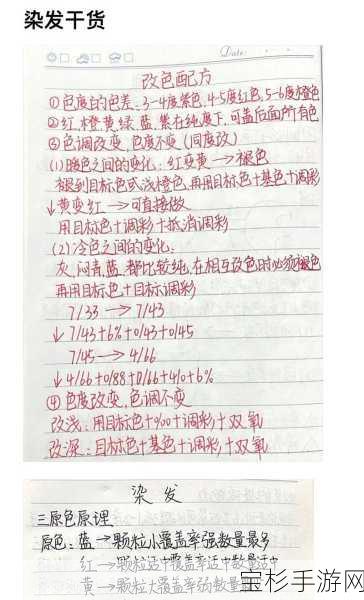 染发干货
Date:
改色配方
①色度的色差:3-4度紫色,4-5度红色,5-6度橙色
②红.橙.黄.绿.蓝.紫在纯度下,可盖后面所有色
③色调改变,色度不变(同度改)
(1)暖色之间的变化:红变黄→褪色
褪到目标色或浅橙色,再用目标色+基色+调彩
↓黄变红→可直接做
用目标色+调彩+抵消调彩
(2)冷色之间的变化:
灰.闷青.蓝.都比较纯,在相互改色时必须褪色
再用目标色+目标调彩
7/33→7/43
↓7/43+6%+0/43+0/45
7/45→4/66
↓4/66+0/88+0/66+4/0+6%
④色度改变,色调不变
改浅:用目标色+%00+调彩+双氧
改深:目标色+基色+调彩+双氧
染发
三原色原理
原色:蓝→颗粒小覆盖率强数量最多
红→颗粒适中覆盖率适中数量适中
黄→颗粒大覆盖率弱数量
宝杉手游网